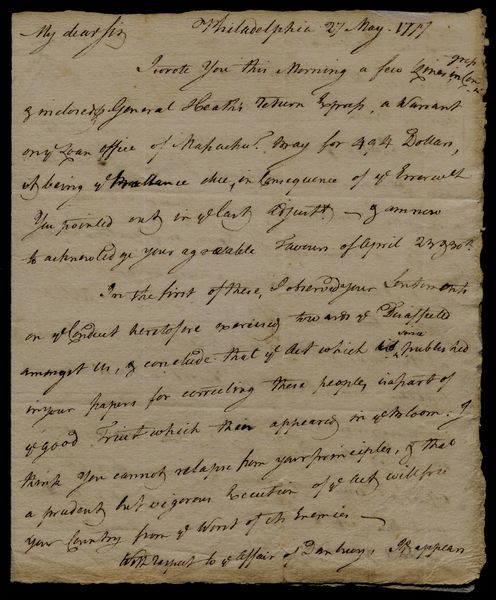 My dear Sir Philadelphia 27 May. 1777
I wrote You this Morning a few Lines
& inclosed General Heath's return Express, a Warrant
on ye Loan office of Massachu. Bay for 494 Dollars,
it being ye Ballance due, in Consequence of ye Error
You pointed out in ye last Adjustt. — & am now
to acknowledge your agreeable Favours of April 23 & 30th.
In the first of these, I observe your Sentiments
on ye Conduct heretofore exercised towards ye Disaffected
amongst us, & conclude that ye Act which is since published
in your papers for correcting these people, is a part of
ye good Fruit which then appeared in ye bloom. I
think You cannot relapse from your principles, & that
a prudent but vigorous Execution of ye Act will free
your Country from ye Worst of its Enemies —
With respect to ye Affair of Danbury, It appears